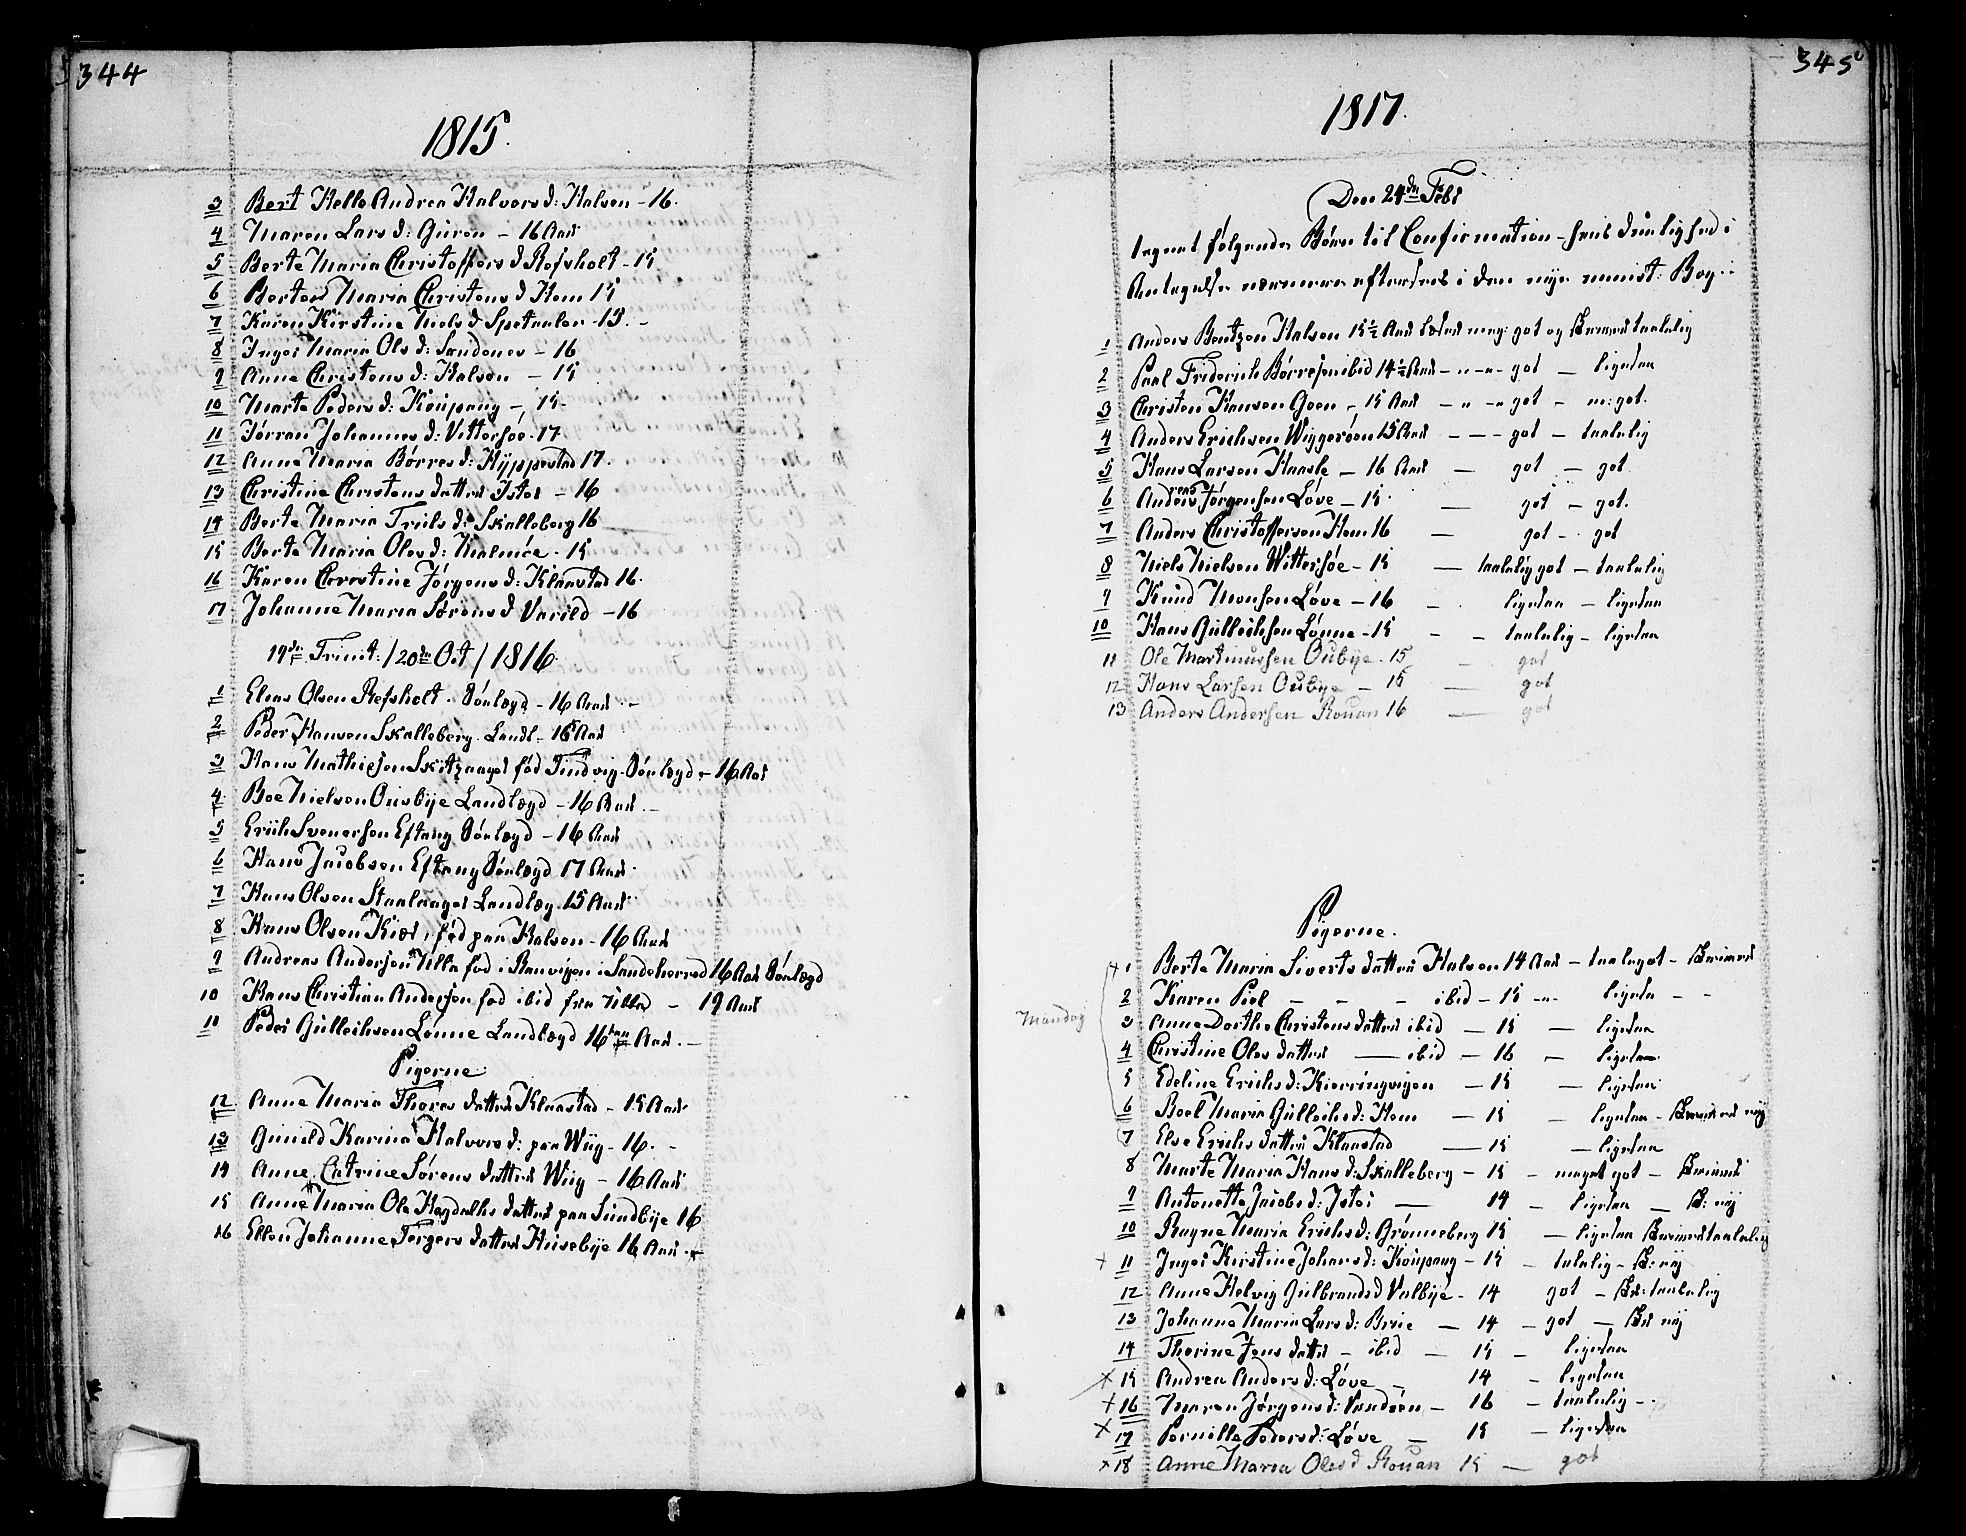 344
1815.
3 Bert Helle Andrea Halvors d: Halsen - 16.
4 Maren Lars d: Guren - 16 Aar
5 Berte Maria Christoffers d Refsholt - 15
6 Berte Maria Christens d Hem 15
7 Karen Kirstine Niels d Spetaalen - 15. -
8 Inger Maria Ols d: Sandenes - 16
9 Anne Christens d: Halsen - 15
10 Marte Peders d: Koupang -, 15-
11 Jørran Johannes d: Vittersøe - 17
12 Anna Maria Børres d: Hyppestad 17.
13 Christine Christens datter Ister - 16
14 Berte Maria Truls d: Skalleberg 16
15 Berte Maria Oles d: Malmøe - 15
16 Karen Christine Jørgens d: Klaastad 16.
17 Johanne Maria Sørens d Varild - 16
19de Trinit: / 20de Oct / 1816.
1 Elias Olsen Refsholt. Sønlægd - 16 Aar. -
2 Peder Hansen Skalleberg. Landl - 16 Aar
3 Hans Mathiesen Skitzaager fød Tindvig. Sønlægd - 16 Aar
4 Boe Nielsen Ousbye Landlægd - 16 Aar. -
5 Erich Svenersen Eftang Sønlægd - 16 Aar
6 Hans Jacobsen Eftang Sønlægd 17 Aar.
7 Hans Olsen Staalaager Landlæg 15 Aar
8 Hans Olsen Kiær, fød paa Halsen - 16 Aar
9 Andreas Andersen Ulla fød i Ranvigen i Sandeherred 16 Aar Sønlægd
10 Hans Christian Andersen fød ibid fra Ulla - 19 Aar
11 Peder Gulleichsen Lønne Landlægd 16 Aar. -
Pigerne
12 Anne Maria Thores datter Klaastad - 15 Aar
13 Gunild Karina Halvors d: paa Wiig - 16. -
14 Anne Catrine Sørens datter Wiig - 16 Aar
15 Anne Maria Ole Hegdalls datter paa Sundbye 16
16 Ellen Johanne Torgers datter Husebye 16 Aar. -
345
1817.
Den 24de Febr
tegnet følgende Børn til Confirmation - hvis Duelighed i
Antagelse nærmere efterses i den nye minist: Bog.
1 Anders Bentzen Halsen 15 1/2 Aar Læser meg: got og Kriened taalelig
2 Poul Friderich Børresen ibid 14 1/2 Aar - " - " - got - ligesaa
3 Christen Hansen Goen - 15 Aar - " - " got - m: got.
4 Anders Erichsen Wiggerøen 15 Aar - - - got - taalelig
5 Hans Larsen Haasle - 16 Aar - got - got.
6 Anders Jørgensen Løve - 15. - got - got.
7 Anders Christoffersen Hem 16 - got - got
8 Niels Nielsen Wittersøe - 15 - taalelig got - taalelig
9 Knud Monsen Løve - 16 - ligesaa - ligesaa
10 Hans Gulleichsen Lønne - 15 - - taalelig - ligesaa
11 Ole Martinussen Oubye. 15 - got
12 Hans Larsen Oubye - 15 - got
13 Anders Andersen Rouan 16 - got
Pigerne.
+ 1 Berte Maria Siverts datter Halsen 14 Aar - taalegot -
2 Karen Piel - - - ibid - 15 - " - ligesaa - -
Mandag
3 Anne Dorthe Christens datter ibid - 15 - ligesaa
4 Christine Oles datter - ibid - 16 - ligesaa
5 Edeline Erichs d: Kierringvigen - 15 - ligesaa
6 Boel Maria Gulleichs d: Hem - 15 - ligesaa -
7 Else Erichs datter Klaastad - 15 - ligesaa
8 Marte Maria Hans d: Skalleberg - 15 - meget got -
9 Antonette Jacobs d: Ister - 14 - ligesaa -
10 Ragne Maria Erichs d: Grønneberg 15 - ligesaa taalelig
+ 11 Inger Kirstine Johans d: Koupang - 15 - talelig -
12 Anne Helvig Gulbrands d Valbye - 14 got - taalelig
13 Johanne Maria Lars d: Brue - 14 - got -
14 Thorine Jens datter - ibid - 15 - ligesaa
x 15 Andrea Anders d: Løve - 14 - ligesaa
+ 16 Maren Jørgens d: - 16 - taalelig -.
x 17 Pernille Peders d: Løve - 15 - ligesaa
x 18 Anne Maria Oles d Rouan 15 - got